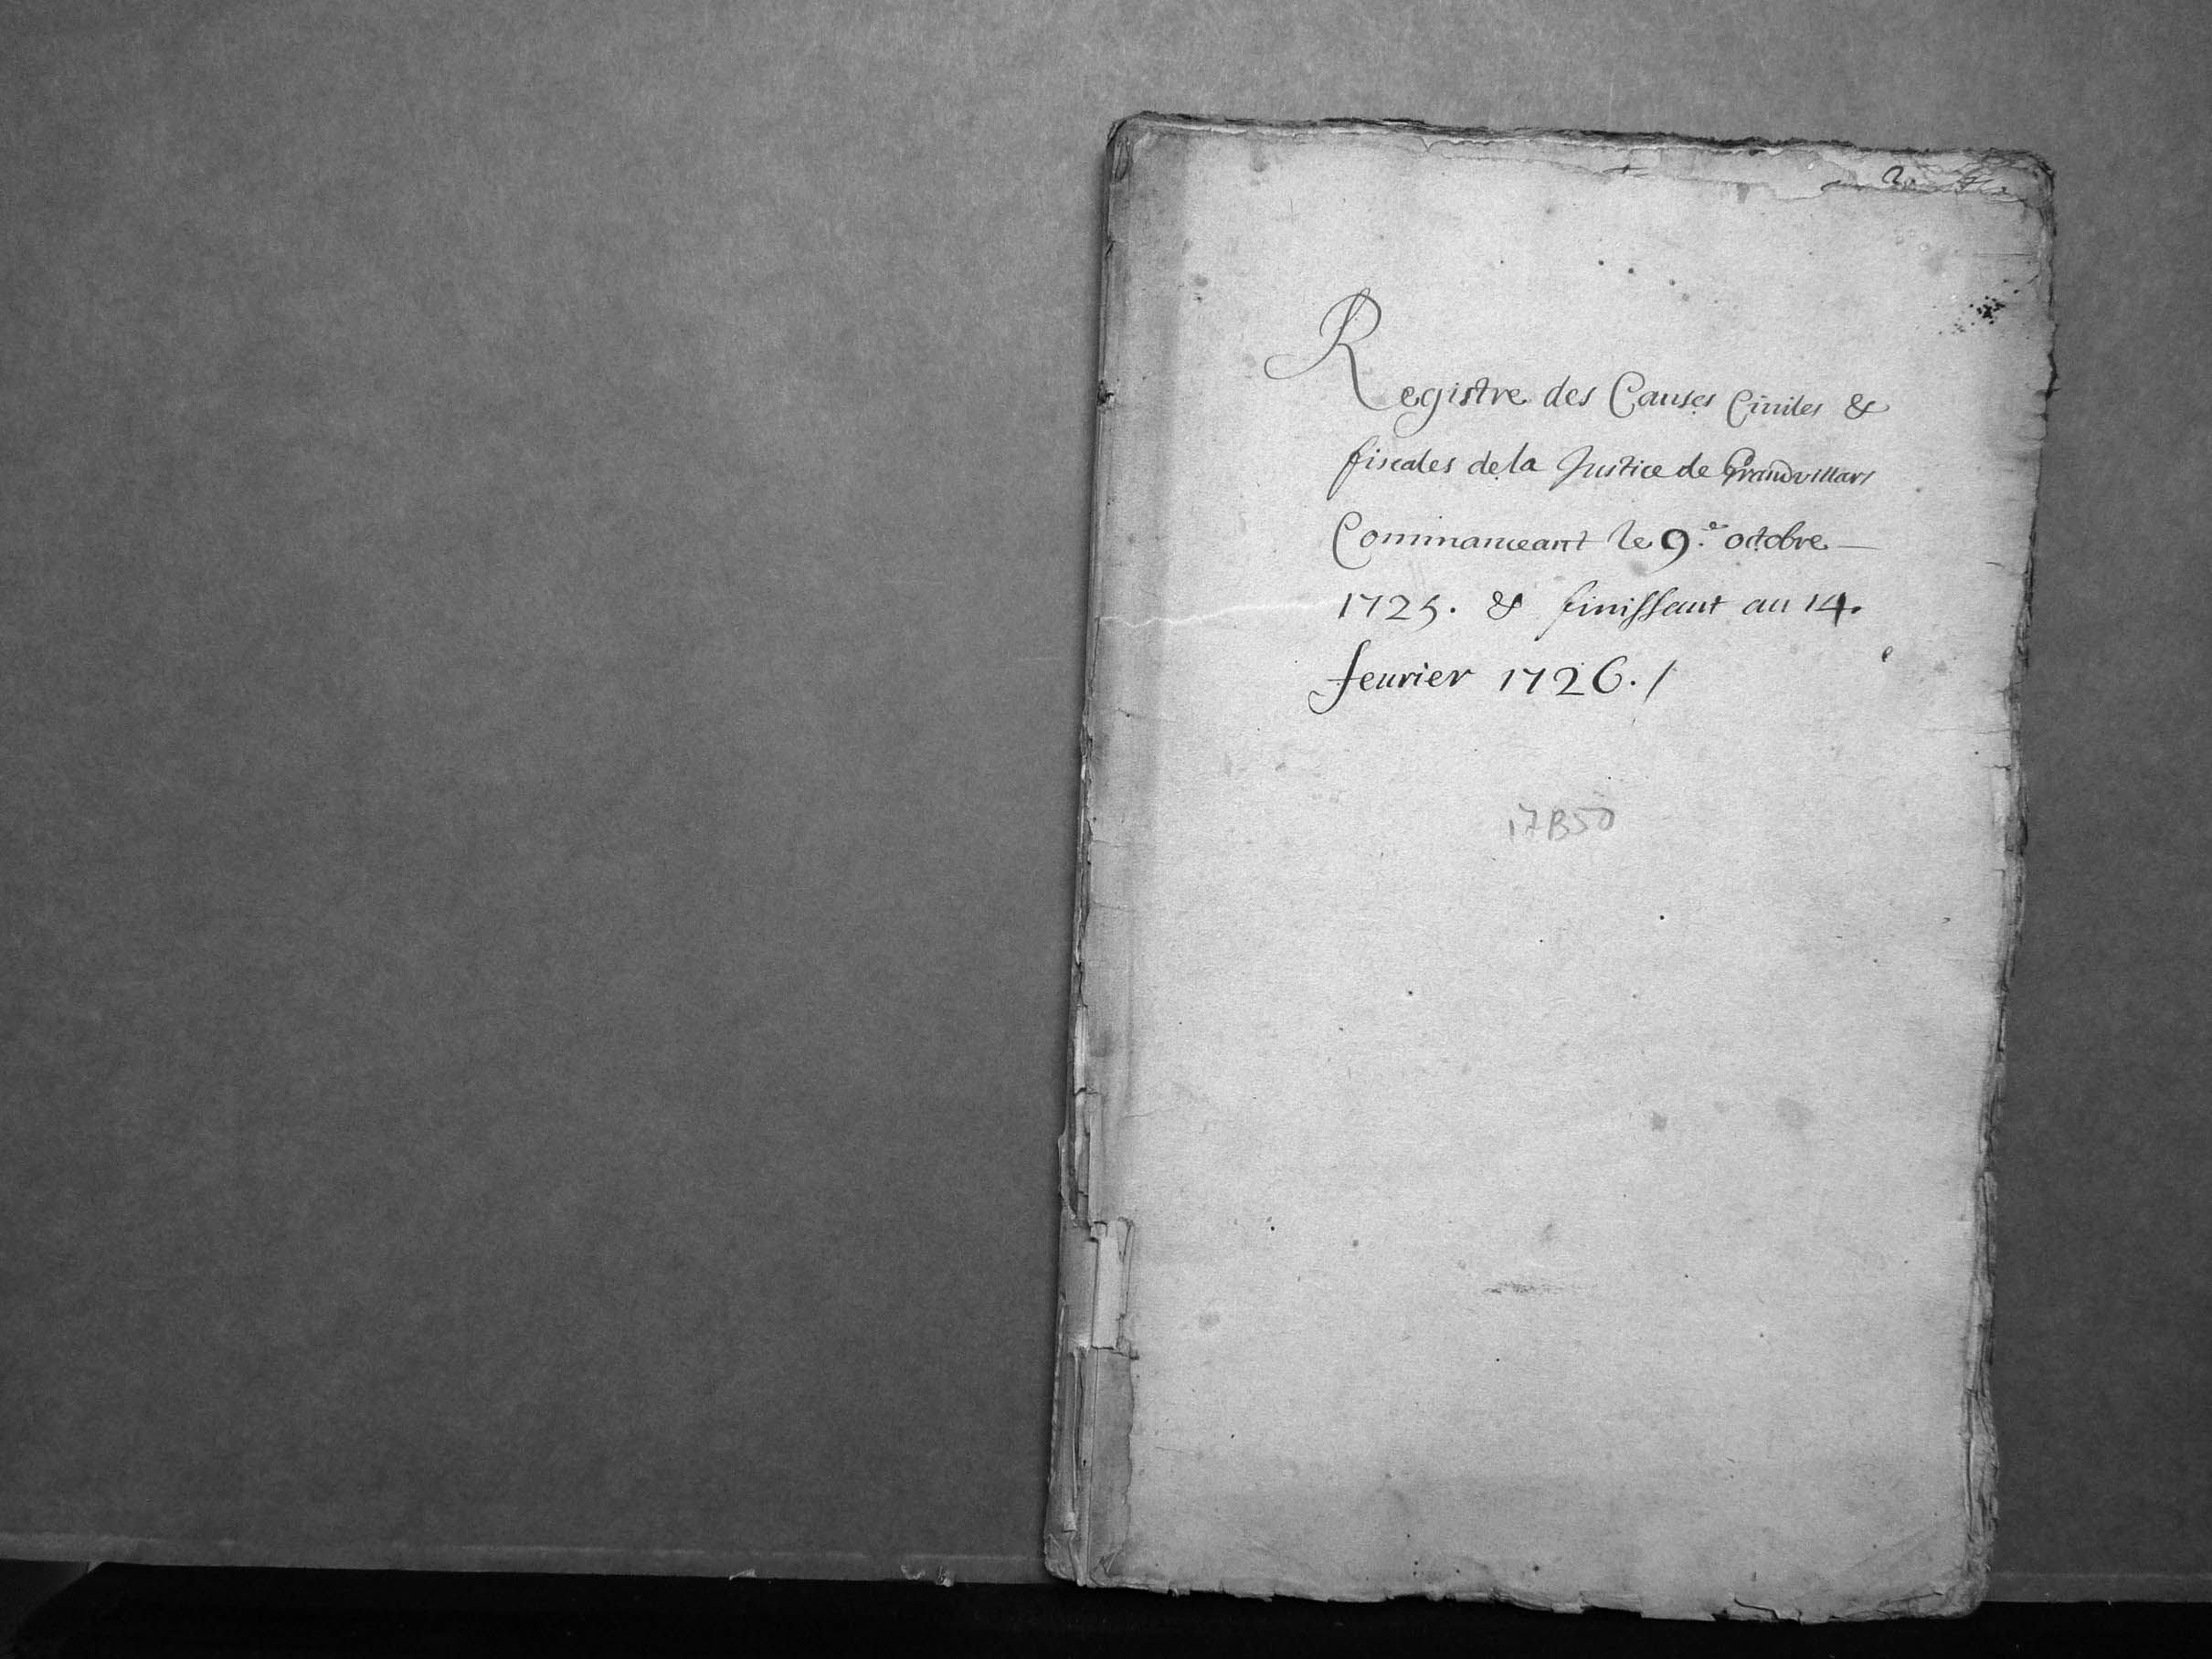 Registre des Causes Ciuiles &
fiscales de la Justice de Grandvillars
Commanceant le 9.e octobre
1725. & finissant au 14.
feurier 1726. /
17B50